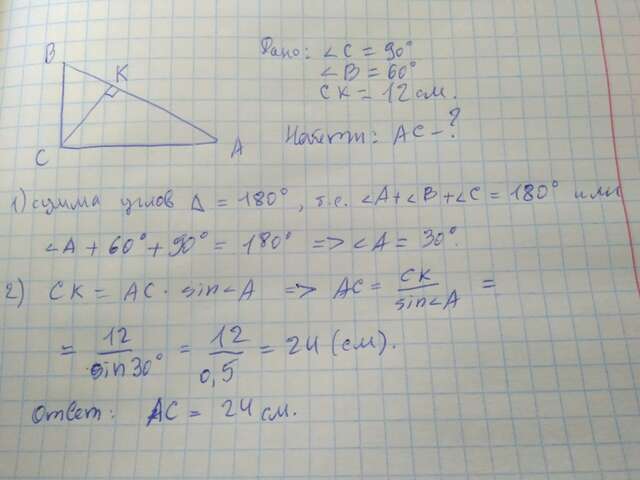 B
K
C
A
Дано: ∠C = 90°
∠B = 60°
CK = 12 см.
Найти: AC - ?
1) сумма углов Δ = 180°, т.е. ∠A + ∠B + ∠C = 180° или
∠A + 60° + 90° = 180° => ∠A = 30°.
2) CK = AC · sin∠A => AC = CK / sin∠A =
= 12 / sin30° = 12 / 0,5 = 24 (см).
Ответ: AC = 24 см.